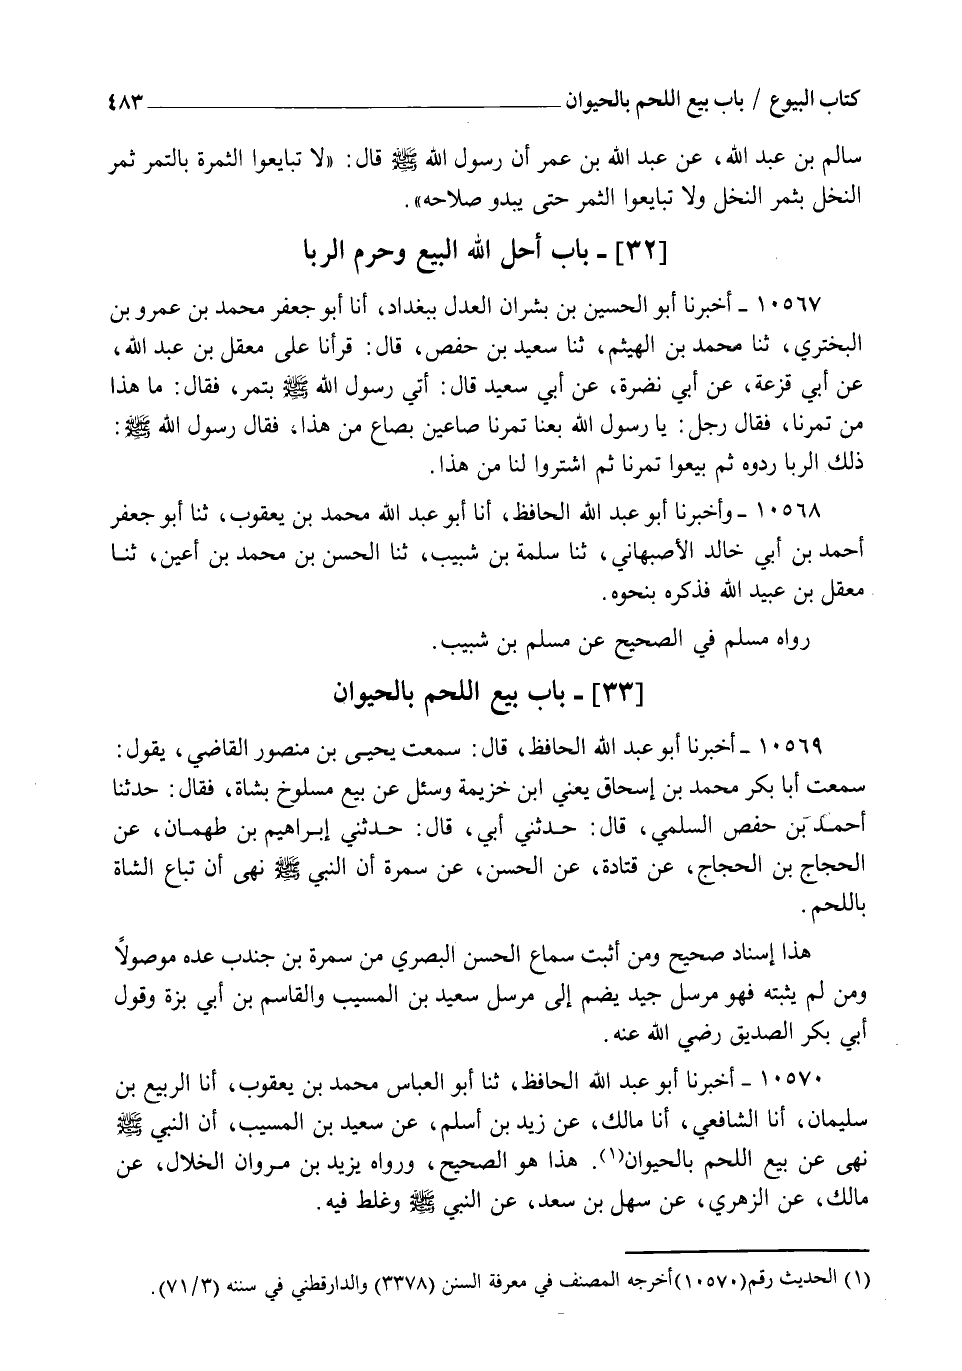 كتاب البيوع / باب بيع اللحم بالحيوان ــــــــــ ٤٨٣
سالم بن عبد الله، عن عبد الله بن عمر أن رسول الله ﷺ قال: «لا تبايعوا الثمرة بالتمر ثمر
النخل بثمر النخل ولا تبايعوا الثمر حتى يبدو صلاحه».
[٣٢] ـ باب أحل الله البيع وحرم الربا
١٠٥٦٧ ـ أخبرنا أبو الحسين بن بشران العدل ببغداد، أنا أبو جعفر محمد بن عمرو بن
البختري، ثنا محمد بن الهيثم، ثنا سعيد بن حفص، قال: قرأنا على معقل بن عبد الله،
عن أبي قزعة، عن أبي نضرة، عن أبي سعيد قال: أتي رسول الله ﷺ بتمر، فقال: ما هذا
من تمرنا، فقال رجل: يا رسول الله بعنا تمرنا صاعين بصاع من هذا، فقال رسول الله ﷺ:
ذلك الربا ردوه ثم بيعوا تمرنا ثم اشتروا لنا من هذا.
١٠٥٦٨ ـ وأخبرنا أبو عبد الله الحافظ، أنا أبو عبد الله محمد بن يعقوب، ثنا أبو جعفر
أحمد بن أبي خالد الأصبهاني، ثنا سلمة بن شبيب، ثنا الحسن بن محمد بن أعين، ثنـا
معقل بن عبيد الله فذكره بنحوه.
رواه مسلم في الصحيح عن مسلم بن شبيب.
[٣٣] ـ باب بيع اللحم بالحيوان
١٠٥٦٩ ـ أخبرنا أبو عبد الله الحافظ، قال: سمعت يحيى بن منصور القاضي، يقول:
سمعت أبا بكر محمد بن إسحاق يعني ابن خزيمة وسئل عن بيع مسلوخ بشاة، فقال: حدثنا
أحمد بن حفص السلمي، قال: حدثني أبي، قال: حدثني إبراهيم بن طهمان، عن
الحجاج بن الحجاج، عن قتادة، عن الحسن، عن سمرة أن النبي ﷺ نهى أن تباع الشاة
باللحم.
هذا إسناد صحيح ومن أثبت سماع الحسن البصري من سمرة بن جندب عده موصولاً
ومن لم يثبته فهو مرسل جيد يضم إلى مرسل سعيد بن المسيب والقاسم بن أبي بزة وقول
أبي بكر الصديق رضي الله عنه.
١٠٥٧٠ ـ أخبرنا أبو عبد الله الحافظ، ثنا أبو العباس محمد بن يعقوب، أنا الربيع بن
سليمان، أنا الشافعي، أنا مالك، عن زيد بن أسلم، عن سعيد بن المسيب، أن النبي ﷺ
نهى عن بيع اللحم بالحيوان(١). هذا هو الصحيح، ورواه يزيد بن مروان الخلال، عن
مالك، عن الزهري، عن سهل بن سعد، عن النبي ﷺ وغلط فيه.
(١) الحديث رقم(١٠٥٧٠)أخرجه المصنف في معرفة السنن (٣٣٧٨) والدارقطني في سننه (٧١/٣).